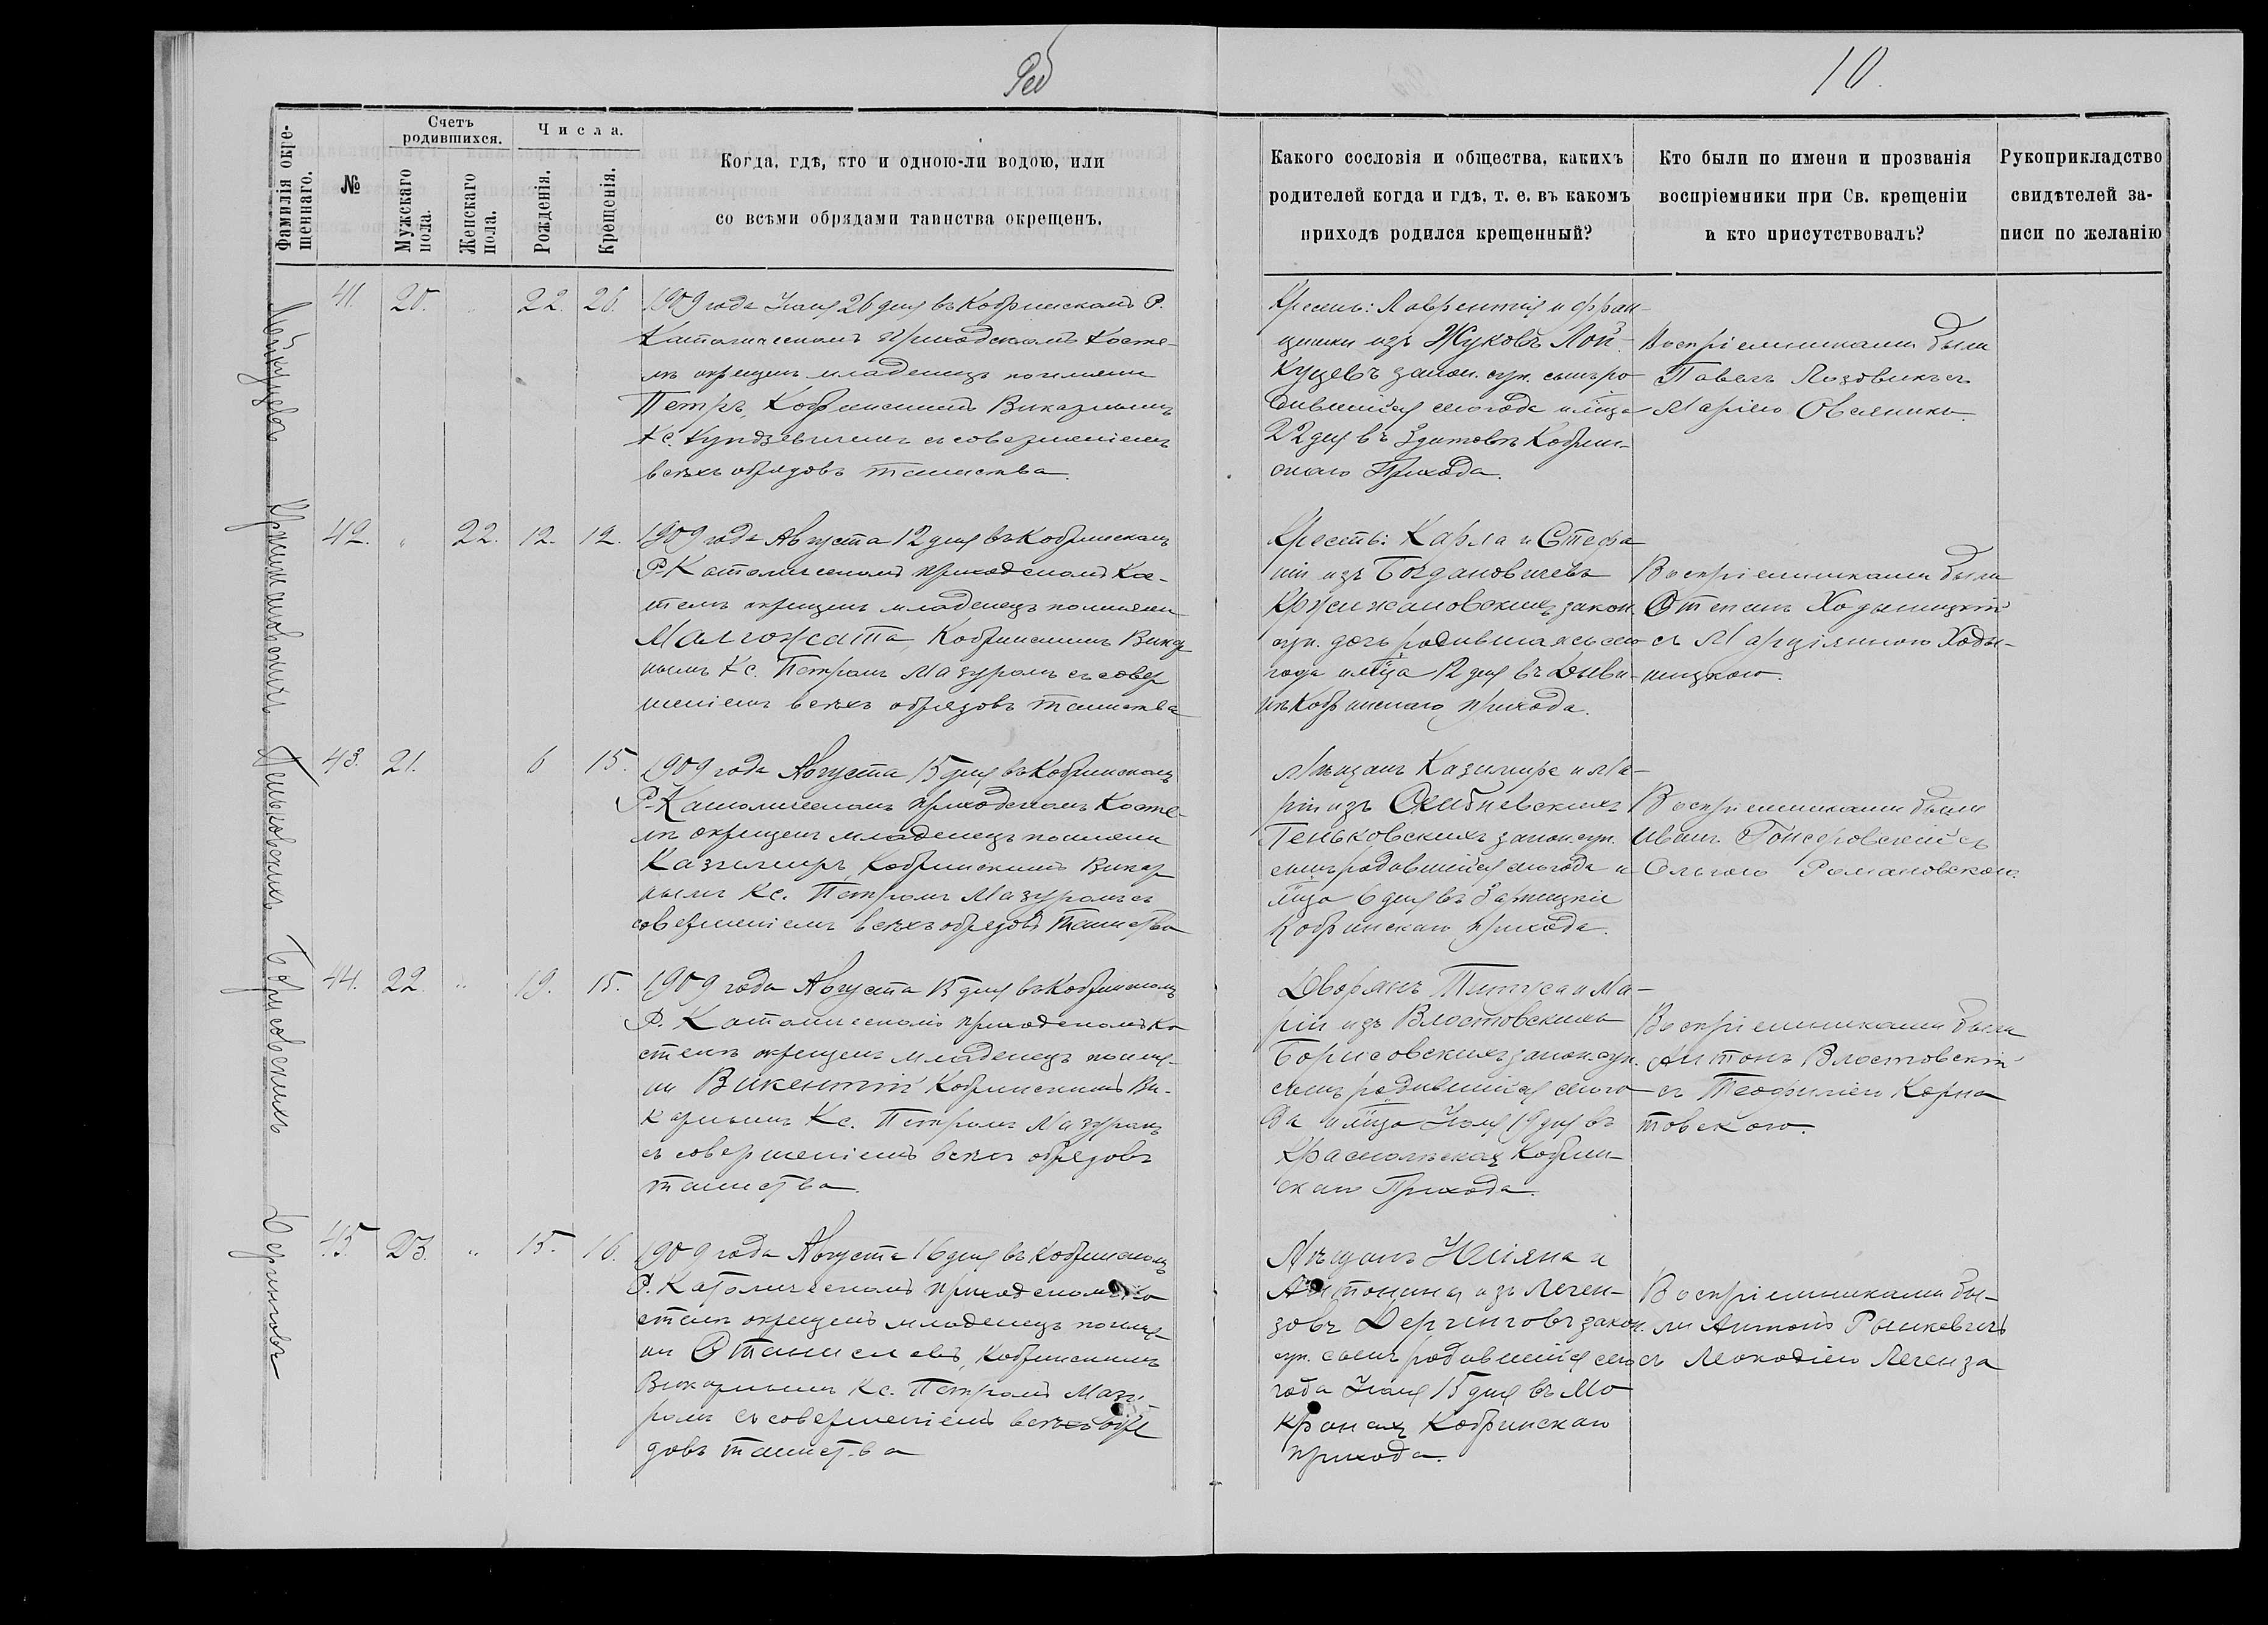 10.
Фамилія окре-
щеннаго.
№
Счетъ
родившихся.
Мужскаго
пола.
Женскаго
пола.
Числа.
Рожденія.
Крещенія.
Когда, гдѣ, кто и одною-ли водою, или
со всѣми обрядами таинства окрещенъ.
Какого сословія и общества, какихъ
родителей когда и гдѣ, т. е. въ какомъ
приходѣ родился крещенный?
Кто были по имени и прозванія
воспріемники при Св. крещеніи
и кто присутствовалъ?
Рукоприкладство
свидѣтелей за-
писи по желанію
41. 20. 22. 26.
1909 года 26 дня въ Кобринскомъ Р.
Католическомъ приходскомъ Косте-
лѣ окрещенъ младенецъ по имени
Петръ, Кобринскимъ Викарнымъ
Кс. Кундзевичемъ съ совершеніемъ
всѣхъ обрядовъ таинства.
Крестьянъ: Лаврентія и Фран-
цишки изъ Жуковъ Лой-
куцевъ закон. супр. сынъ ро-
дившійся сего года и м-ца
22 дня въ Здитовѣ Кобрин-
скаго Прихода.
Воспріемниками были
Павелъ Лозовикъ съ
Маріею
Кржижановскихъ
42. " 22. 12. 12.
1909 года Августа 12 дня въ Кобринскомъ
Р-Католическомъ приходскомъ Кос-
телѣ окрещенъ младенецъ по имени
Малгожата, Кобринскимъ Викар
нымъ Кс. Петромъ Мазуромъ съ совер
шеніемъ всѣхъ обрядовъ таинства
Крестьянъ: Карла и Стефа
ніи изъ Богдановичевъ
Кржижановскихъ закон.
супр. дочь родившаяся сего
года и м-ца 12 дня въ Диви-
нѣ Кобринскаго прихода.
Воспріемниками были
Степанъ Ходыницкій
съ Марціянною Ходы-
ницкою.
Теньковскихъ
43. 21. 6 15.
1909 года Августа 15 дня въ Кобринскомъ
Р-Католическомъ приходскомъ Косте-
лѣ окрещенъ младенецъ по имени
Казимиръ, Кобринскимъ Викар
нымъ Кс. Петромъ Мазуромъ съ
совершеніемъ всѣхъ обрядовъ таинства
Мѣщанъ Казимира и Ма-
ріи изъ
Теньковскихъ закон. супр.
сынъ родившійся сего года и
м-ца 6 дня въ
Кобринскаго прихода.
Воспріемниками были
Иванъ съ
Ольгою Романовскою.
Борисовскихъ
44. 22. " 19. 15.
1909 года Августа 15 дня въ Кобринскомъ
Р. Католическомъ приходскомъ Ко
стелѣ окрещенъ младенецъ по име-
ни Викентій Кобринскимъ Ви-
карнымъ Кс. Петромъ Мазуромъ
съ совершеніемъ всѣхъ обрядовъ
таинства.
Дворянъ Титуса и Ма-
ріи изъ Влостовскихъ
Борисовскихъ закон. супр.
сынъ родившійся сего го
да и м-ца 19 дня въ
Кобрин-
скаго Прихода.
Воспріемниками были
Антонъ Влостовскій
съ Теофиліею Корна
товскою.
Дерингов
45. 23. " 15. 16.
1909 года Августа 16 дня въ Кобринскомъ
Р. Католическомъ приходскомъ Ко
стелѣ окрещенъ младенецъ по име-
ни Станиславъ, Кобринскимъ
Викарнымъ Кс. Петромъ Мазу-
ромъ съ совершеніемъ всѣхъ обря
довъ таинства
Мѣщанъ Юліяна и
Антонины изъ Леген-
зовъ закон.
супр. сынъ родившійся сего
года 15 дня въ Мо
кранахъ Кобринскаго
прихода.
Воспріемниками бы-
ли Антонъ
съ Леокадіею Легенза